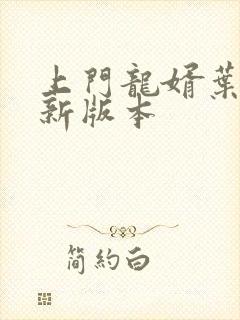 上門龍婿葉
新版本
簡約白